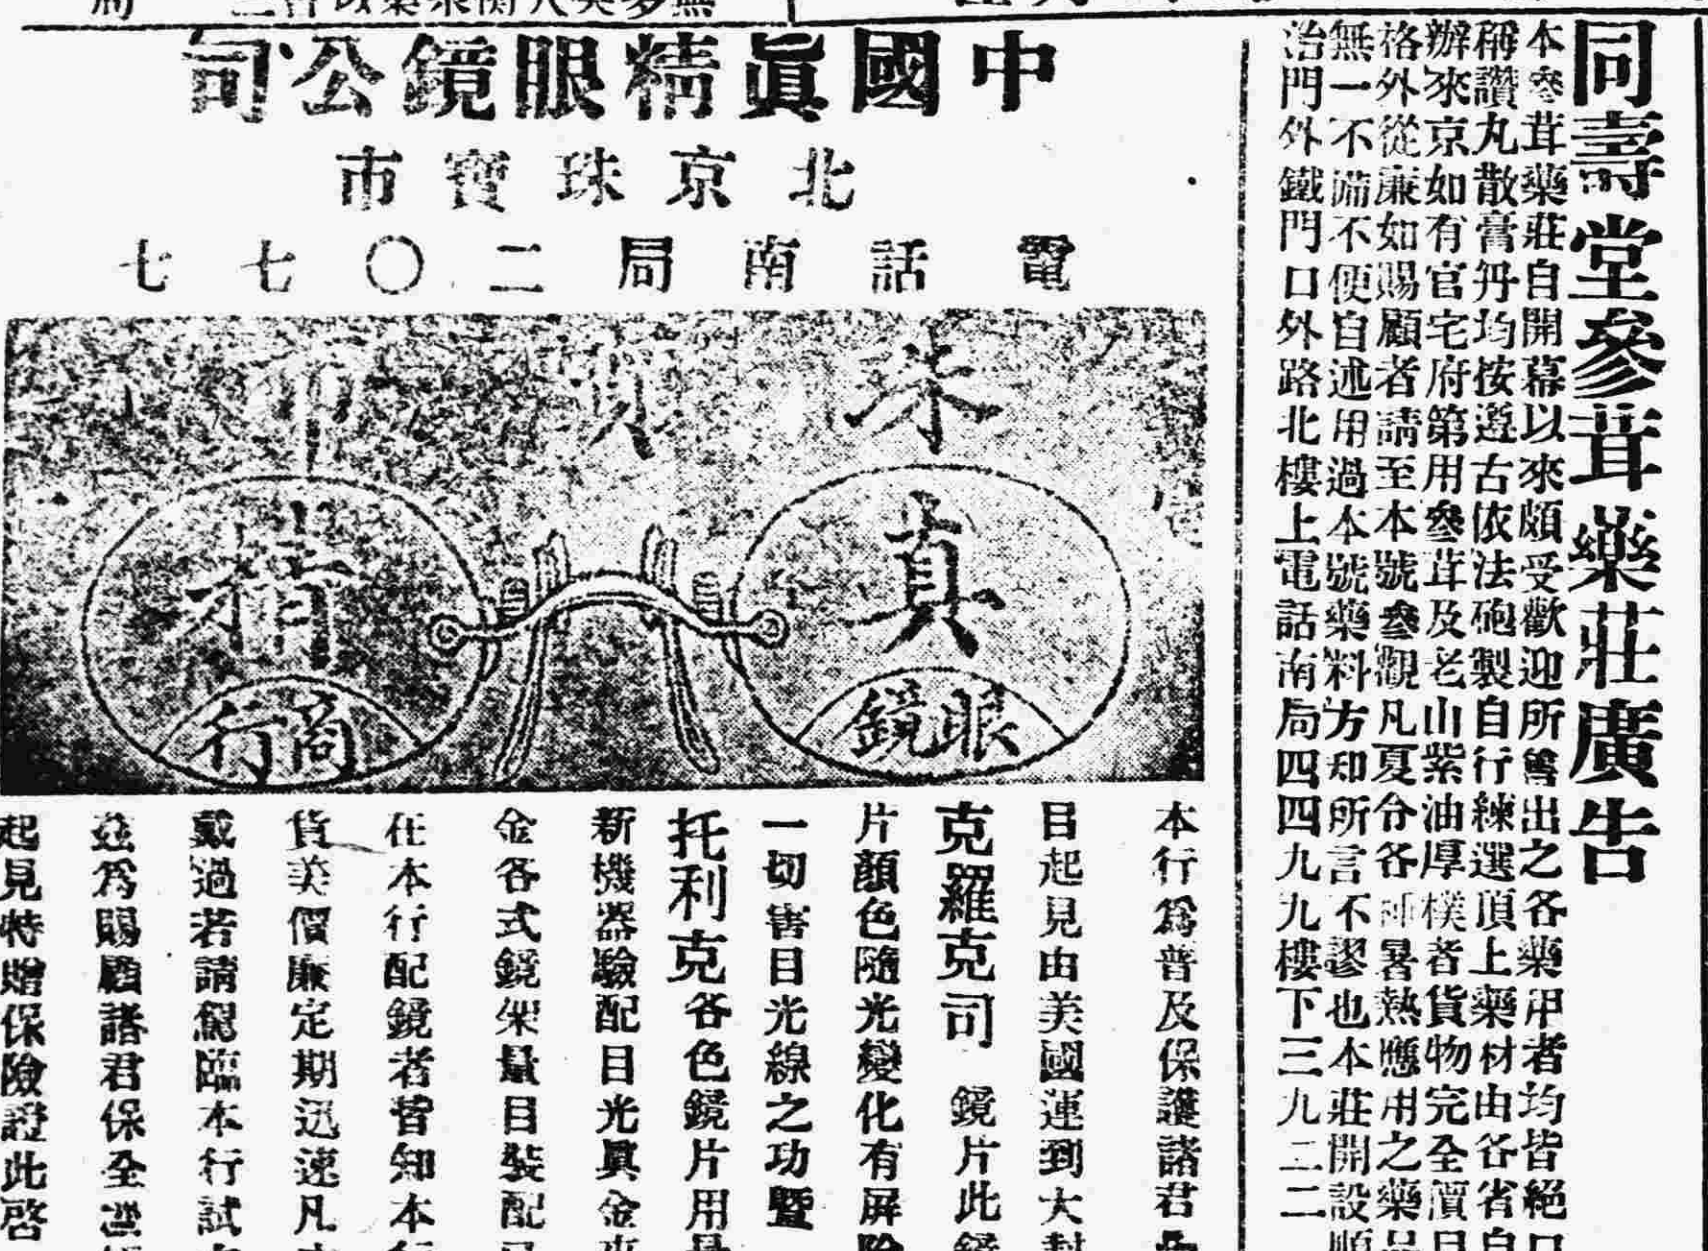 同壽堂參茸藥莊廣告
本參茸藥莊自開幕以來頗受歡迎所售出之各藥用者均皆絕口
稱讚丸散膏丹均按遵古依法砲製自行練選頂上藥材由各省自
辦來京如有官宅府第用參茸及老山紫油厚樸者貨物完全價目
格外從廉如賜顧者請至本號參觀凡夏令各種暑熱應用之藥品
無一不備不便自述用過本號藥料方知所言不謬也本莊開設順
治門外鐵門口外路北樓上電話南局四四九九樓下三九二二
中國眞精眼鏡公司
北京珠寶市
電話南局二〇七七
珠寶市
真
眼鏡
精
商行
本行爲普及保護諸君
目起見由美國運到大
克羅克司 鏡片此
片顏色隨光變化有屏除
一切害目光線之功曁
托利克各色鏡片用
新機器驗配目光眞金
金各式鏡架量目裝配
在本行配鏡者皆知本行
貨美價廉定期迅速凡
戴過若請駕臨本行試
茲爲賜顧諸君保全
起見特贈保險證此啓